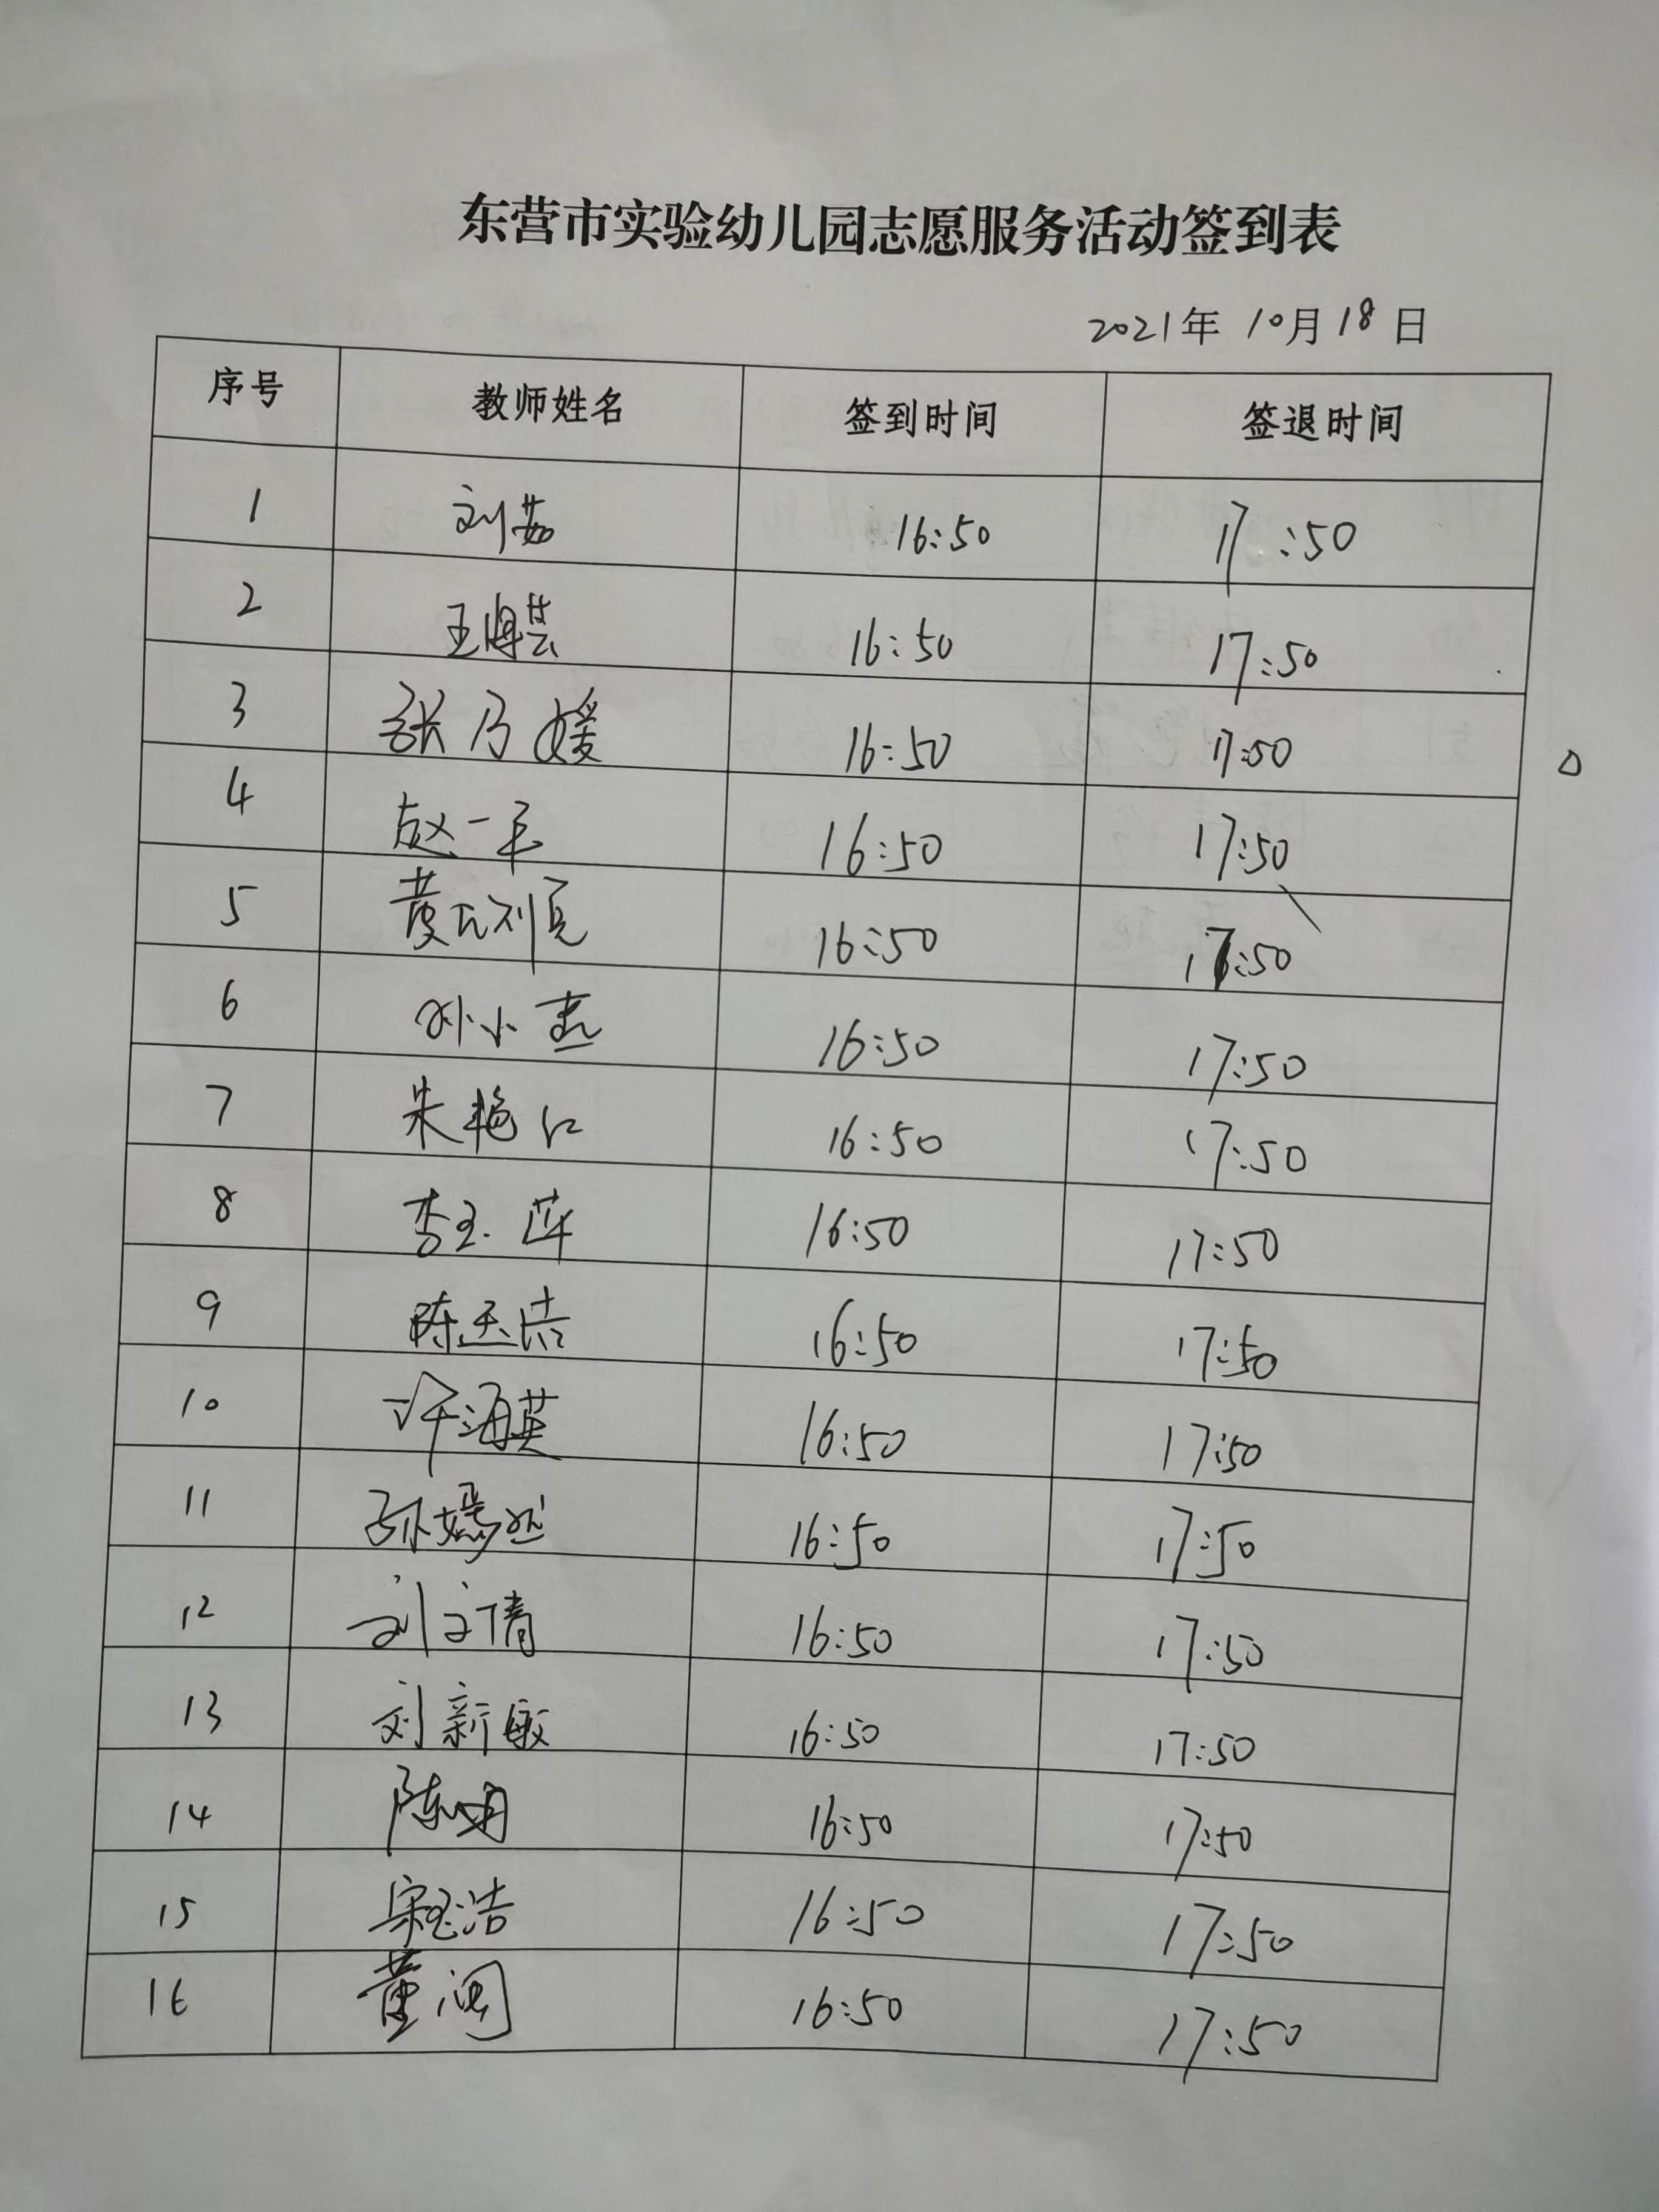 东营市实验幼儿园志愿服务活动签到表
2021年 10月18日
序号 教师姓名 签到时间 签退时间
1 刘茹 16:50 17:50
2 王 16:50 17:50
3 张乃媛 16:50 17:50
4 赵一平 16:50 17:50
5 黄 16:50 17:50
6 孙小燕 16:50 17:50
7 朱艳红 16:50 17:50
8 李玉萍 16:50 17:50
9 陈玉洁 16:50 17:50
10 许海英 16:50 17:50
11 孙嫣然 16:50 17:50
12 刘文倩 16:50 17:50
13 刘新敏 16:50 17:50
14 陈娟 16:50 17:50
15 宋玉洁 16:50 17:50
16 董 16:50 17:50